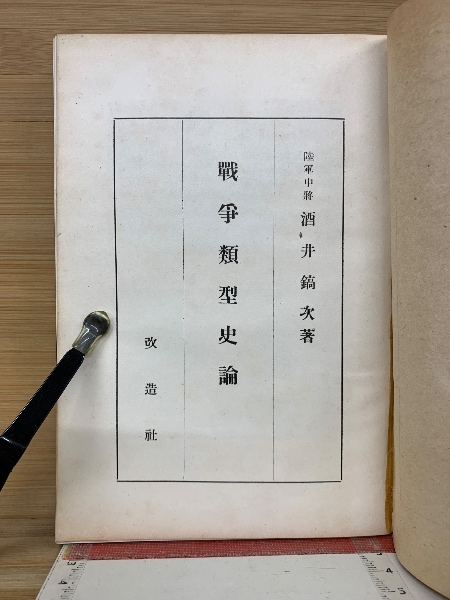 陸軍中將 酒井鎬次著
戰爭類型史論
改造社
3
4
5